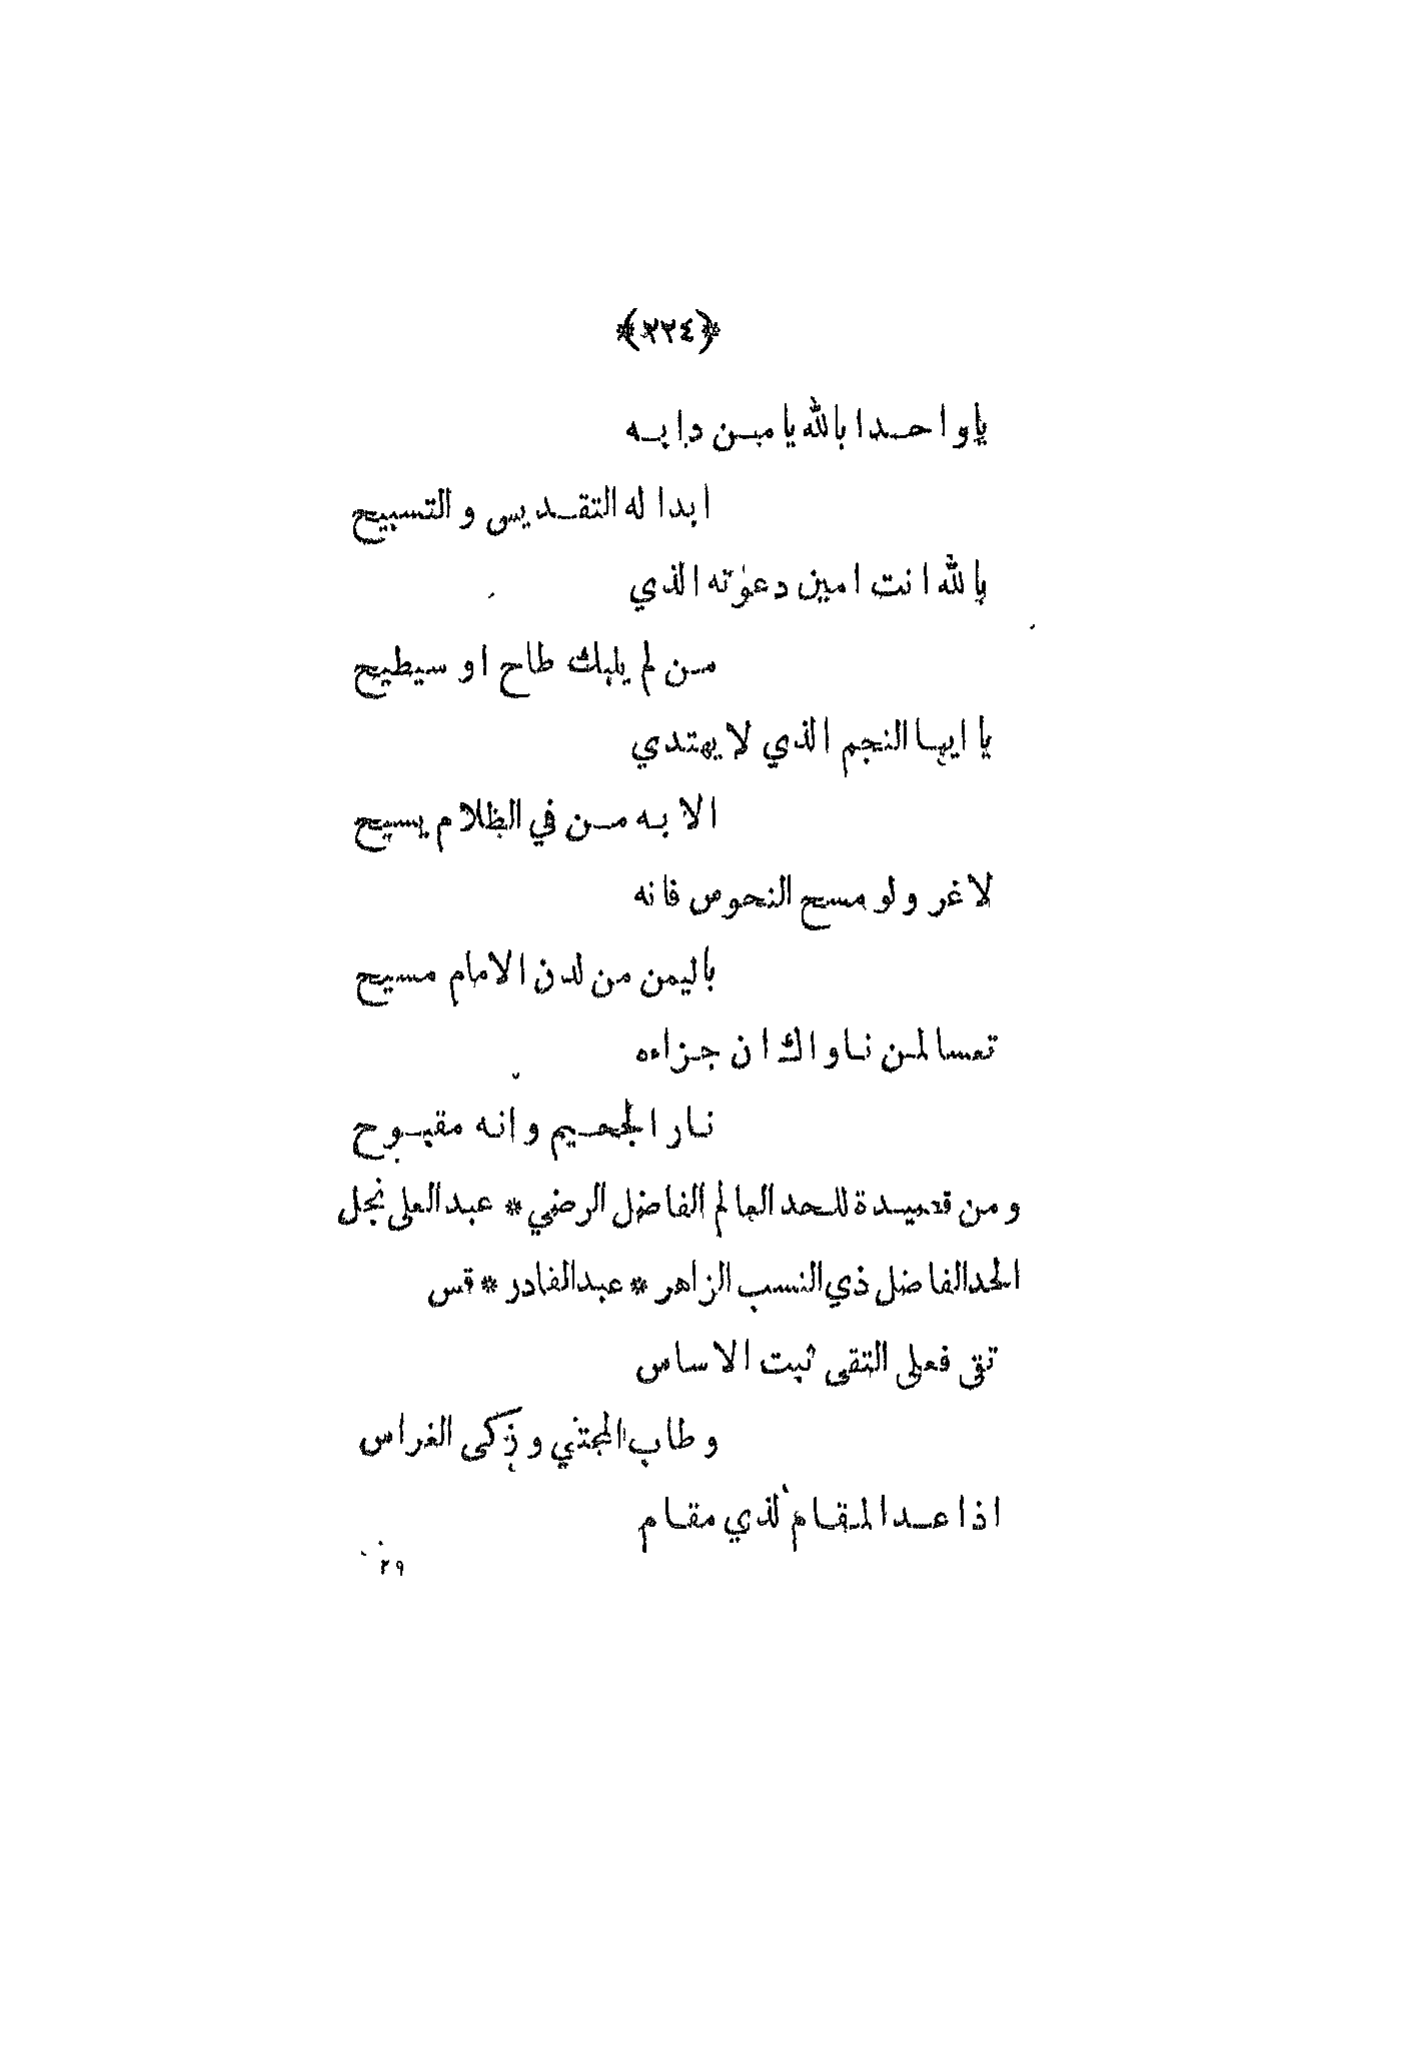 ﴿٢٢٤﴾
يا واحدا بالله يا مبن دابه
ابدا له التقديس والتسبيح
بالله انت امين دعوته الذي
من لم يلبك طاح او سيطيح
يا ايها النجم الذي لا يهتدي
الا به من في الظلام يسيح
لا غر ولو مسح النحوس فانه
باليمن من لدن الامام مسيح
تعسا لمن ناواك ان جزاءه
نار الجحيم وانه مقبوح
ومن قصيدة للحد العالم الفاضل الرضي * عبد العلى نجل
الحد الفاضل ذي النسب الزاهر * عبد القادر * قس
تقى فعلى التقى ثبت الاساس
وطاب المجتني وزكى الغراس
اذا عد المقام لذي مقام
٢٩